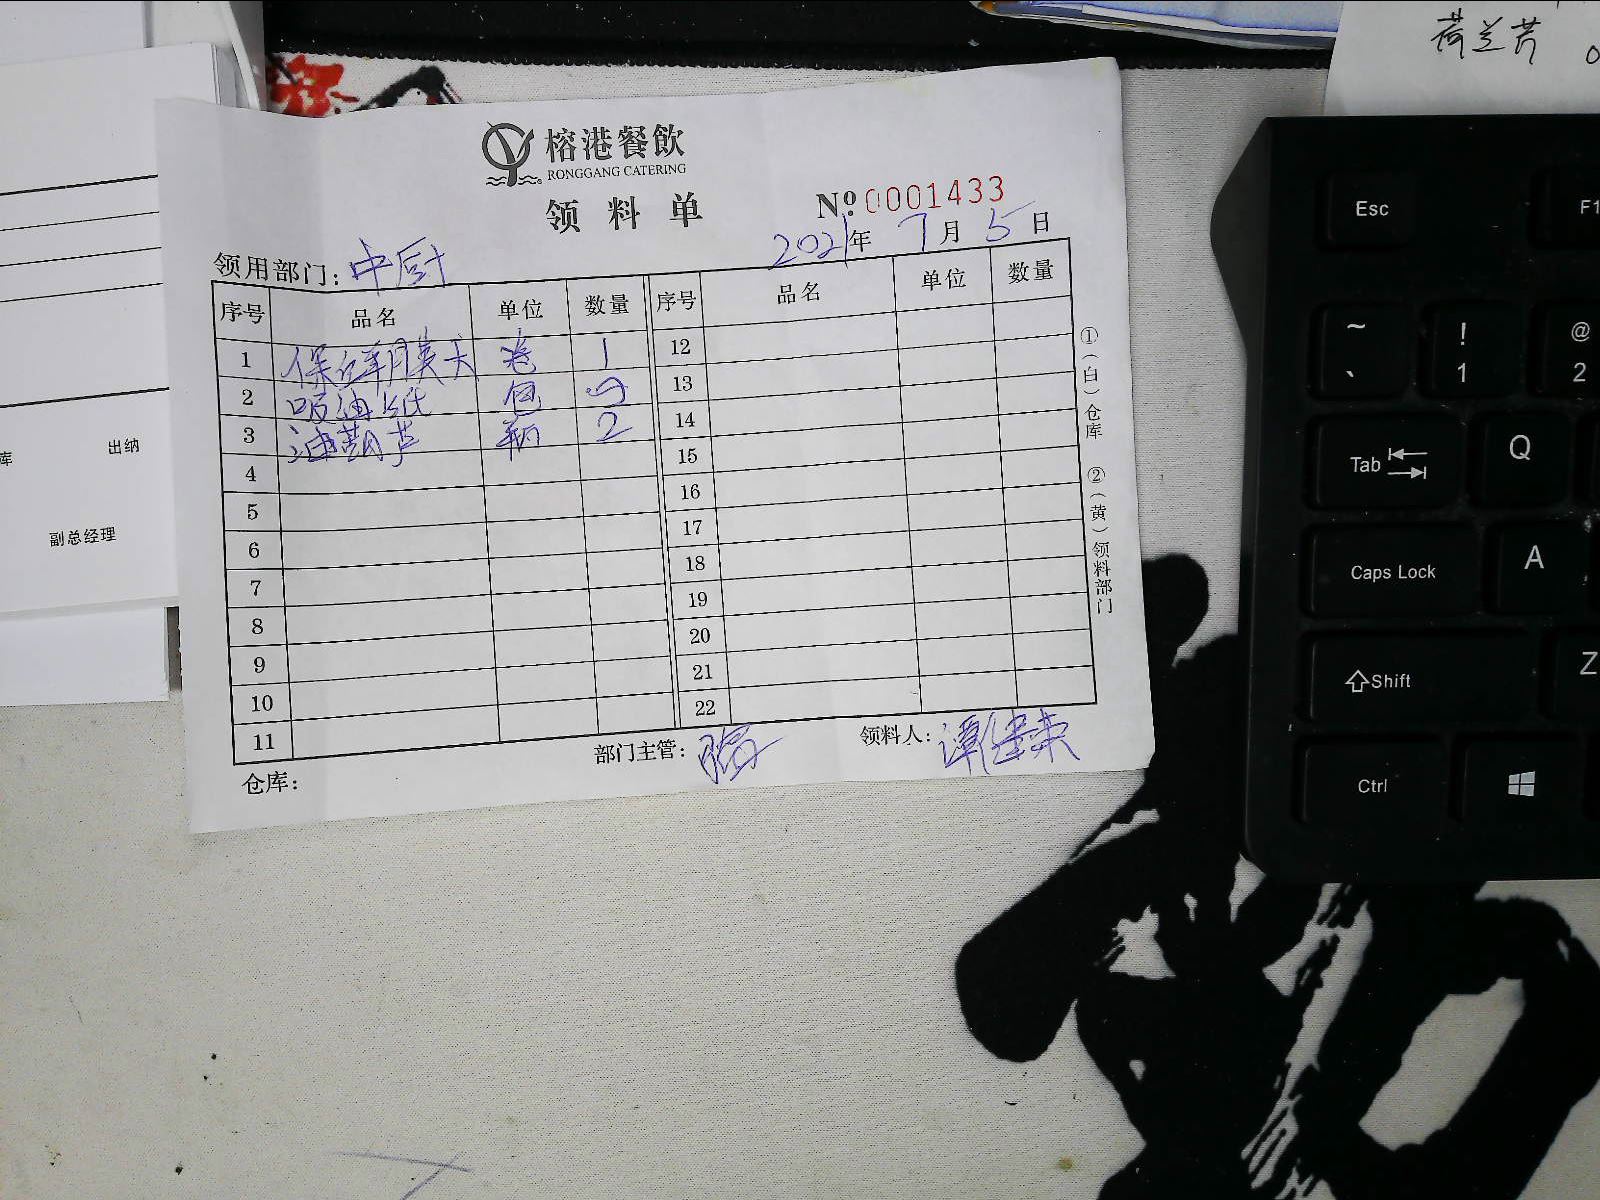 荷兰芹
榕港餐飲
RONGGANG CATERING
领料单
№ 0001433
2021年 7月 5日
领用部门: 中厨
序号 品名 单位 数量 序号 品名 单位 数量
1 保鲜膜大 卷 1 12
2 吸油纸 包 13
3 油葫芦 瓶 2 14
4 15
5 16
6 17
7 18
8 19
9 20
10 21
11 22
仓库: 部门主管: 领料人: 谭健荣
①(白)仓库 ②(黄)领料部门
库 出纳
副总经理
Esc F1
~ ` ! 1 @ 2
Tab Q
Caps Lock A
Shift Z
Ctrl